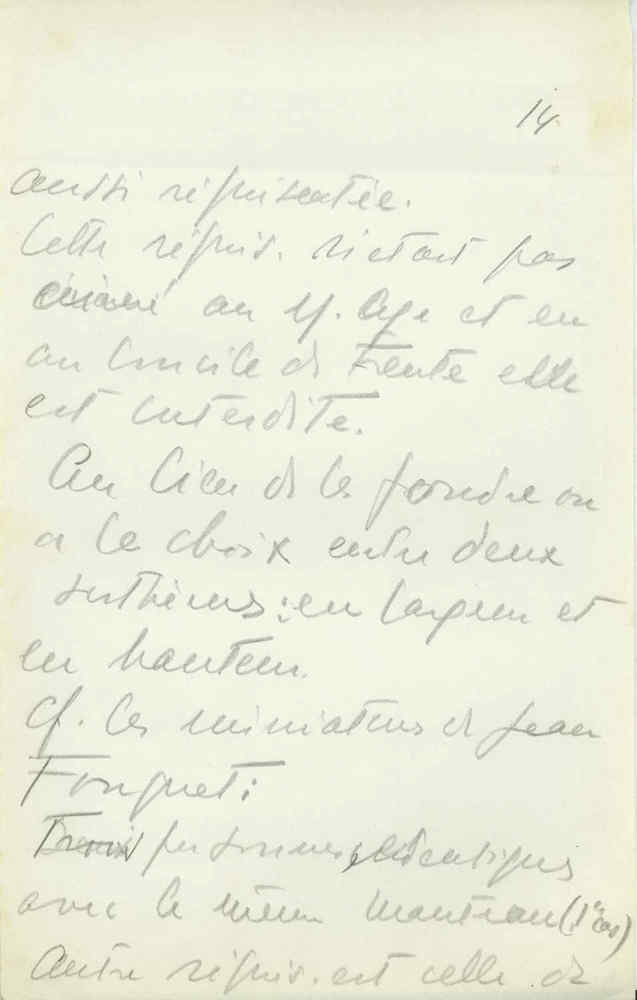 14
aussi représentée.
Cette représ. n'etait pas
au M. Age et en
au Concile de Trente elle
est interdite.
Au lieu de les fondre on
a le choix entre deux
systèmes : en largeur et
en hauteur.
cf. les miniatures de Jean
Fouquet :
Trois personnes, identiques
avec le même manteau (1er cas)
Autre représ. est celle de